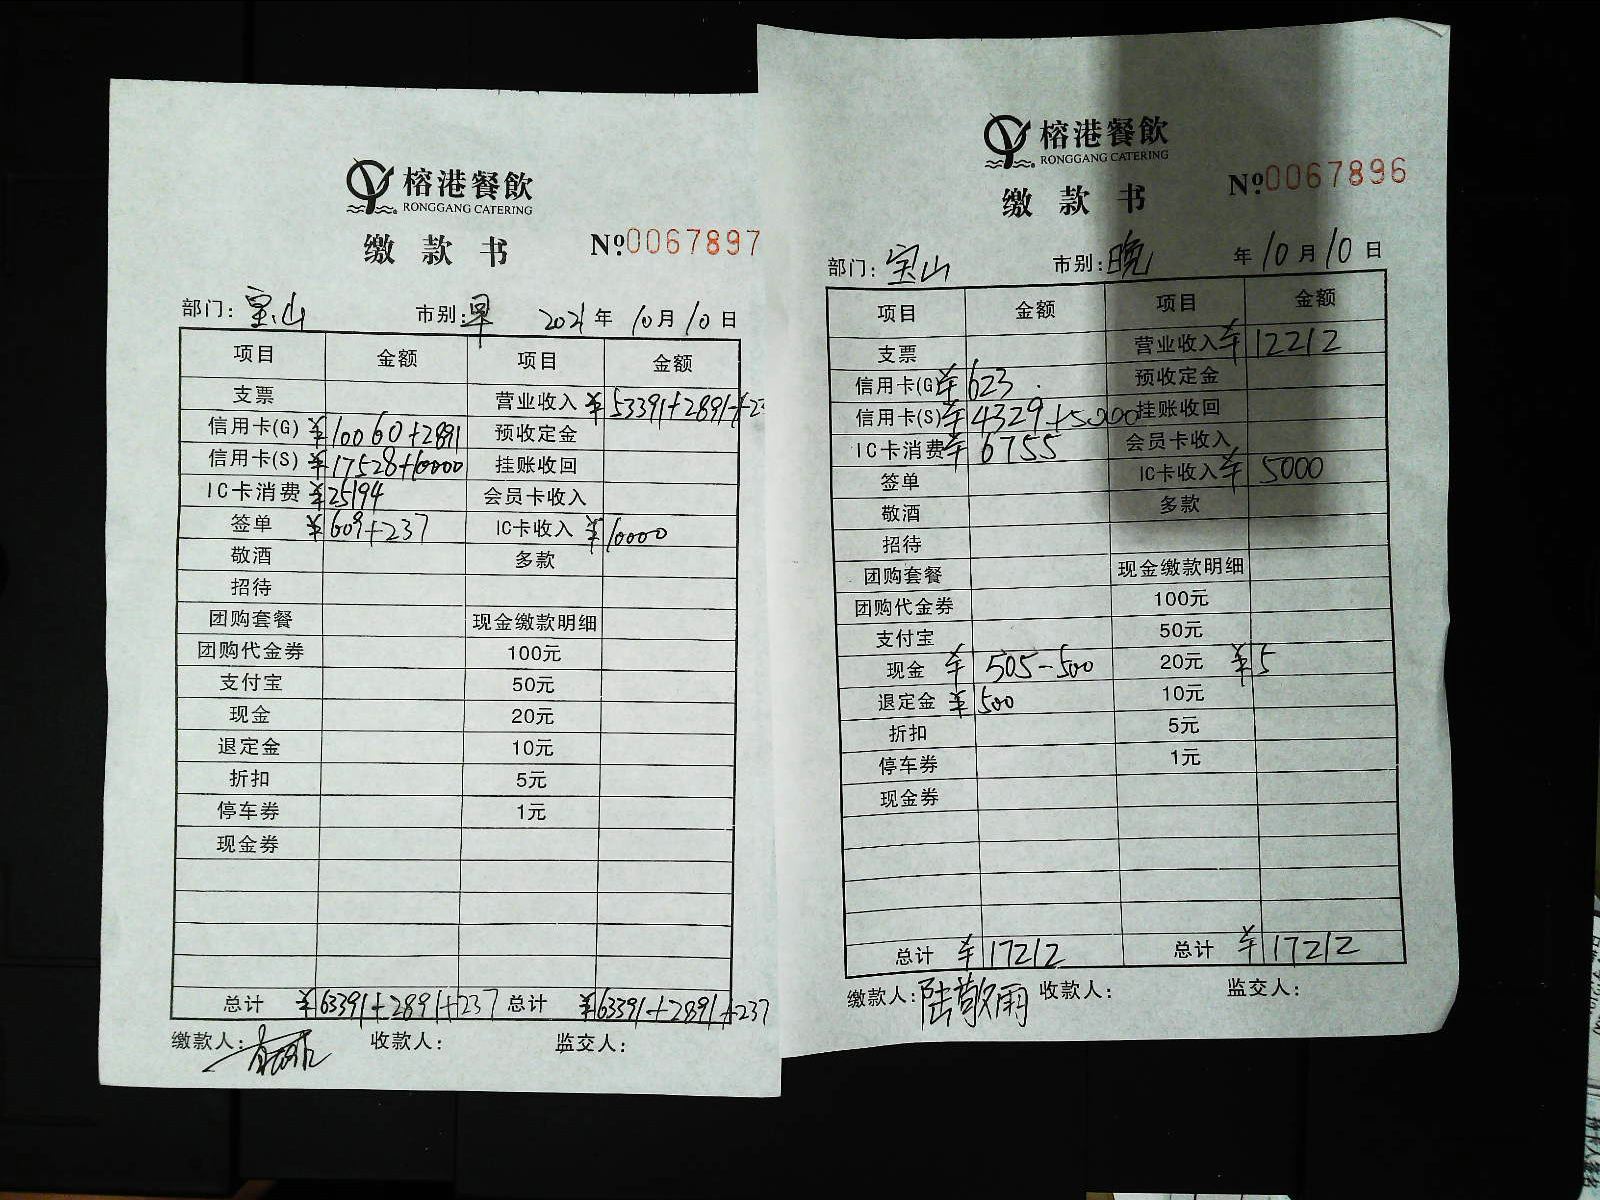 榕港餐飲
RONGGANG CATERING
缴款书 №0067897
部门：宝山 市别：早 2021年10月10日
项目 金额 项目 金额
支票 营业收入 ¥53391+2891+23
信用卡(G) ¥10060+2891 预收定金
信用卡(S) ¥17528+10000 挂账收回
IC卡消费 ¥25194 会员卡收入
签单 ¥609+237 IC卡收入 ¥10000
敬酒 多款
招待
团购套餐 现金缴款明细
团购代金券 100元
支付宝 50元
现金 20元
退定金 10元
折扣 5元
停车券 1元
现金券
总计 ¥63391+2891+237 总计 ¥63391+2891+237
缴款人： 收款人： 监交人：
榕港餐飲
RONGGANG CATERING
缴款书 №0067896
部门：宝山 市别：晚 年10月10日
项目 金额 项目 金额
支票 营业收入 ¥12212
信用卡(G) ¥623 预收定金
信用卡(S) ¥4329+5000 挂账收回
IC卡消费 ¥6755 会员卡收入
签单 IC卡收入 ¥5000
敬酒 多款
招待
团购套餐 现金缴款明细
团购代金券 100元
支付宝 50元
现金 ¥505-500 20元 ¥5
退定金 ¥500 10元
折扣 5元
停车券 1元
现金券
总计 ¥17212 总计 ¥17212
缴款人：陆敬雨 收款人： 监交人：